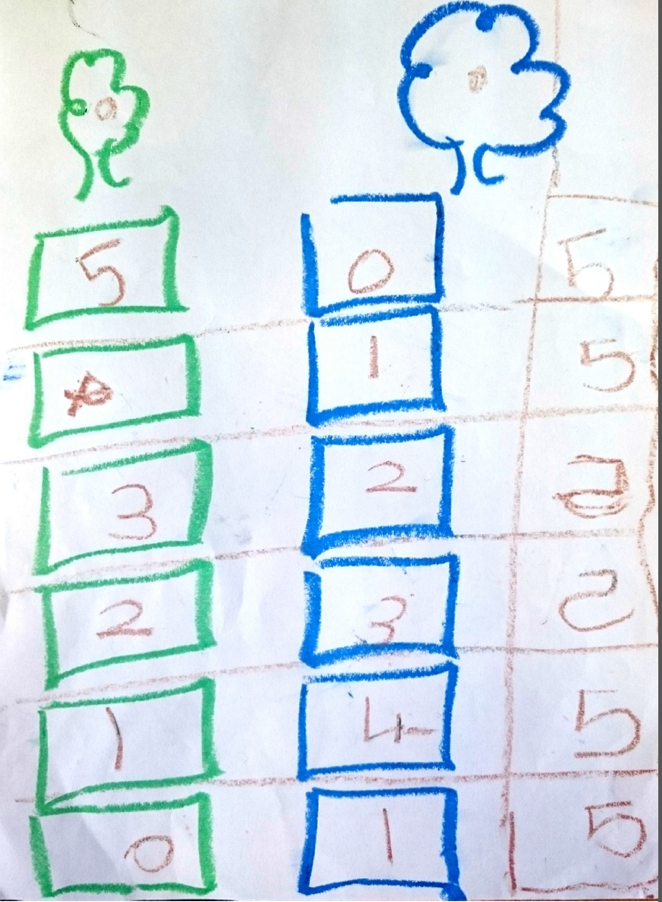 5 0 5
1 5
3 2
2 3
1 4 5
0 1 5